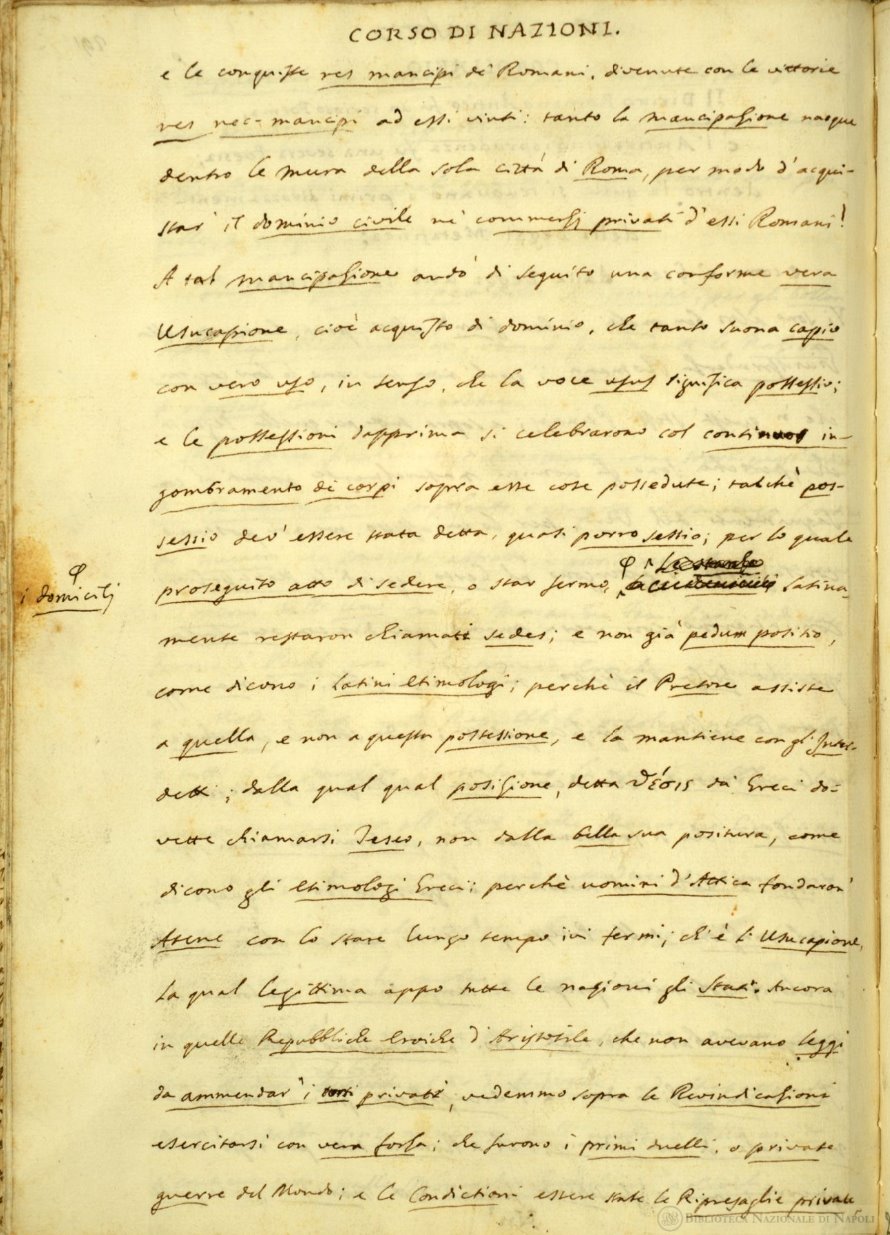 CORSO DI NAZIONI.
e le conquiste res mancipi de' Romani, divenute con le vittorie
res nec-mancipi ad essi vinti: tanto la mancipazione nacque
dentro le mura della sola città di Roma, per modo d'acqui-
star' il dominio civile ne' commerzj privati d'essi Romani!
A tal mancipazione andò di seguito una conforme vera
Usucapione, cioè acquisto di dominio, che tanto suona capio
con vero uso, in senso, che la voce usus significa possessio;
e le possessioni dapprima si celebrarono col continuo in-
gombramento de' corpi sopra esse cose possedute; talchè pos-
sessio dev' essere stata detta, quasi porro sessio; per lo quale
φ
i domicilj
proseguito atto di sedere, o star fermo, φ Latina-
mente restaron chiamati sedes; e non già pedum positio,
come dicono i Latini Etimologi; perchè il Pretore assiste
a quella, e non a questa possessione, e la mantiene con gl'Inter-
detti; dalla qual qual posizione, detta θέσις da' Greci do-
vette chiamarsi Teseo, non dalla bella sua positura, come
dicono gli Etimologi Greci; perchè uomini d'Attica fondaron'
Atene con lo stare lungo tempo ivi fermi; ch'è l'Usucapione,
la qual legittima appo tutte le nazioni gli Stati. Ancora
in quelle Repubbliche Eroiche d'Aristotile, che non avevano leggi
da ammendar' i torti privati, vedemmo sopra le Revindicazioni
esercitarsi con vera forza; che furono i primi duelli, o private
guerre del Mondo; e le Condictioni essere state le Ripresaglie private,
BIBLIOTECA NAZIONALE DI NAPOLI